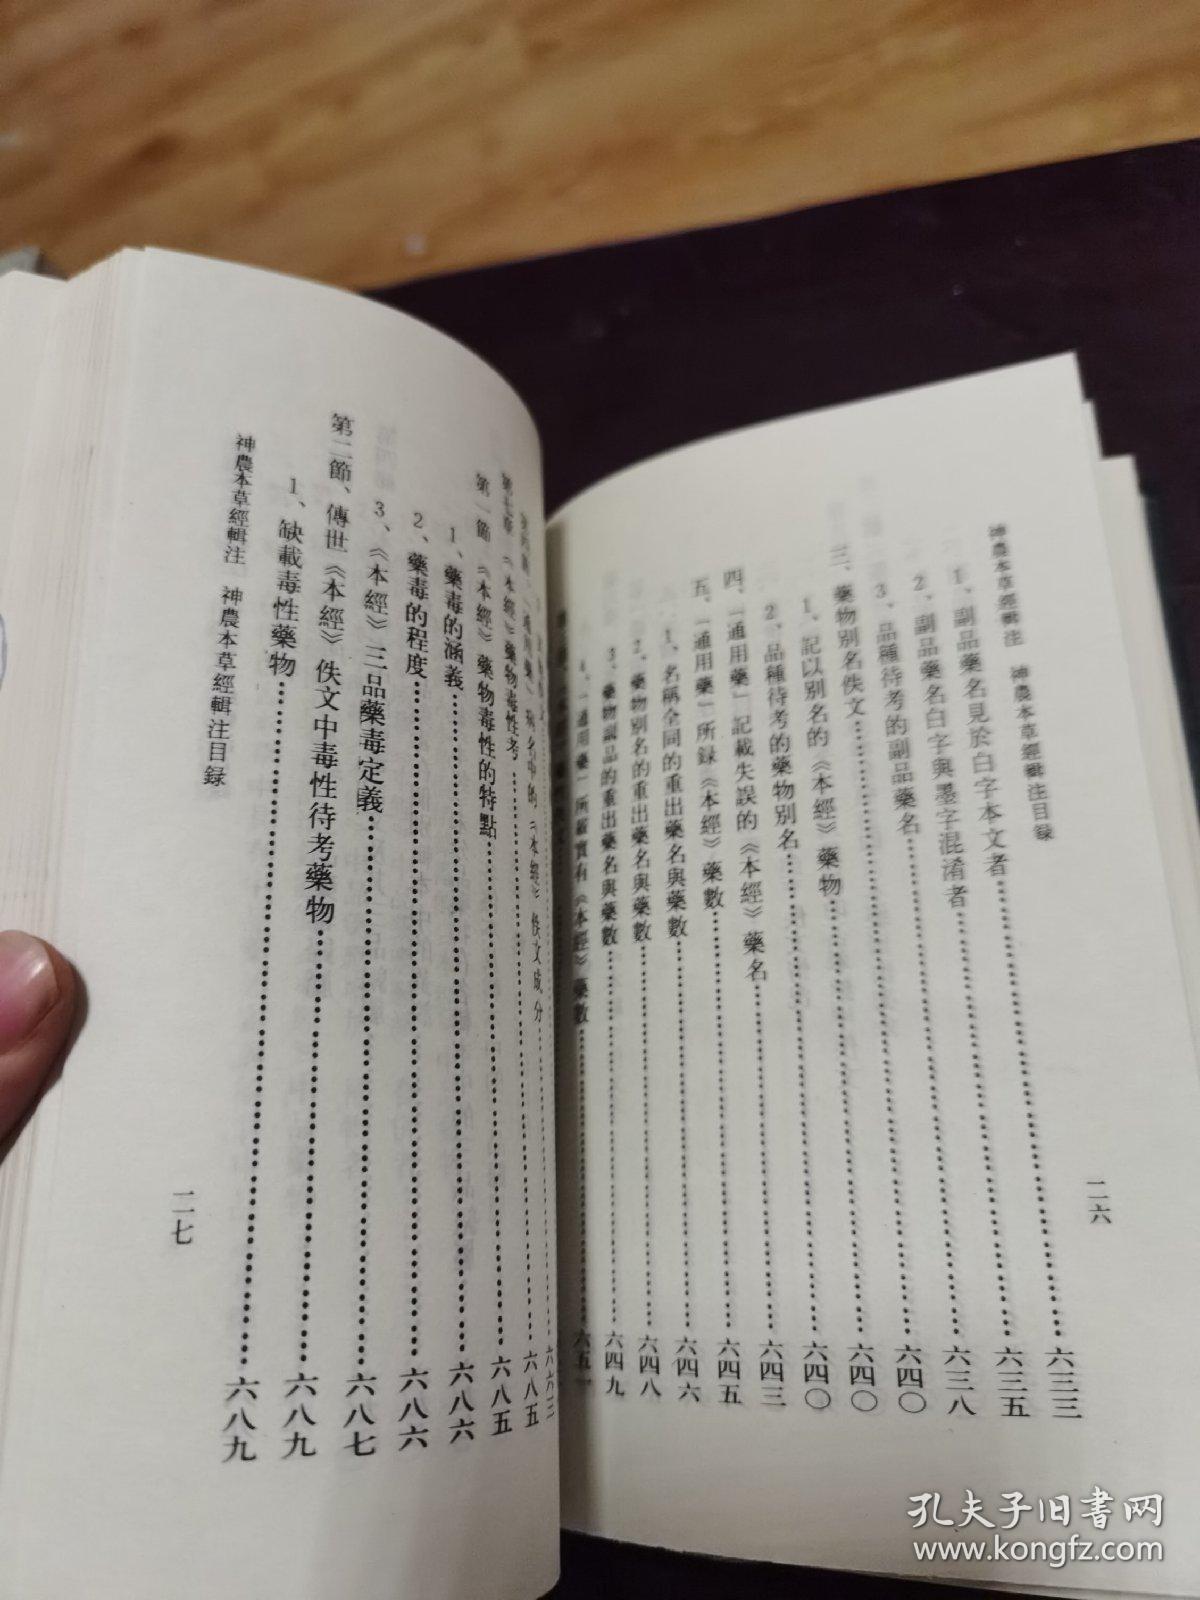 神農本草經輯注　神農本草經輯注目録
二六
1、副品藥名見於白字本文者……六三三
2、副品藥名白字與墨字混淆者……六三五
3、品種待考的副品藥名……六三八
三、藥物別名佚文……六四〇
1、記以別名的《本經》藥物……六四〇
2、品種待考的藥物別名……六四〇
四、「通用藥」記載失誤的《本經》藥名……六四三
五、「通用藥」所録《本經》藥數……六四五
1、名稱全同的重出藥名與藥數……六四六
2、藥物別名的重出藥名與藥數……六四八
3、藥物副品的重出藥名與藥數……六四九
4、「通用藥」所載實有《本經》藥數……六五一
病名中的《本經》佚文成分……六六三
第七章《本經》藥物毒性考……六八五
第一節《本經》藥物毒性的特點……六八五
1、藥毒的涵義……六八六
2、藥毒的程度……六八六
3、《本經》三品藥毒定義……六八七
第二節、傳世《本經》佚文中毒性待考藥物……六八九
1、缺載毒性藥物……六八九
神農本草經輯注　神農本草經輯注目録
二七
孔夫子旧書网
www.kongfz.com